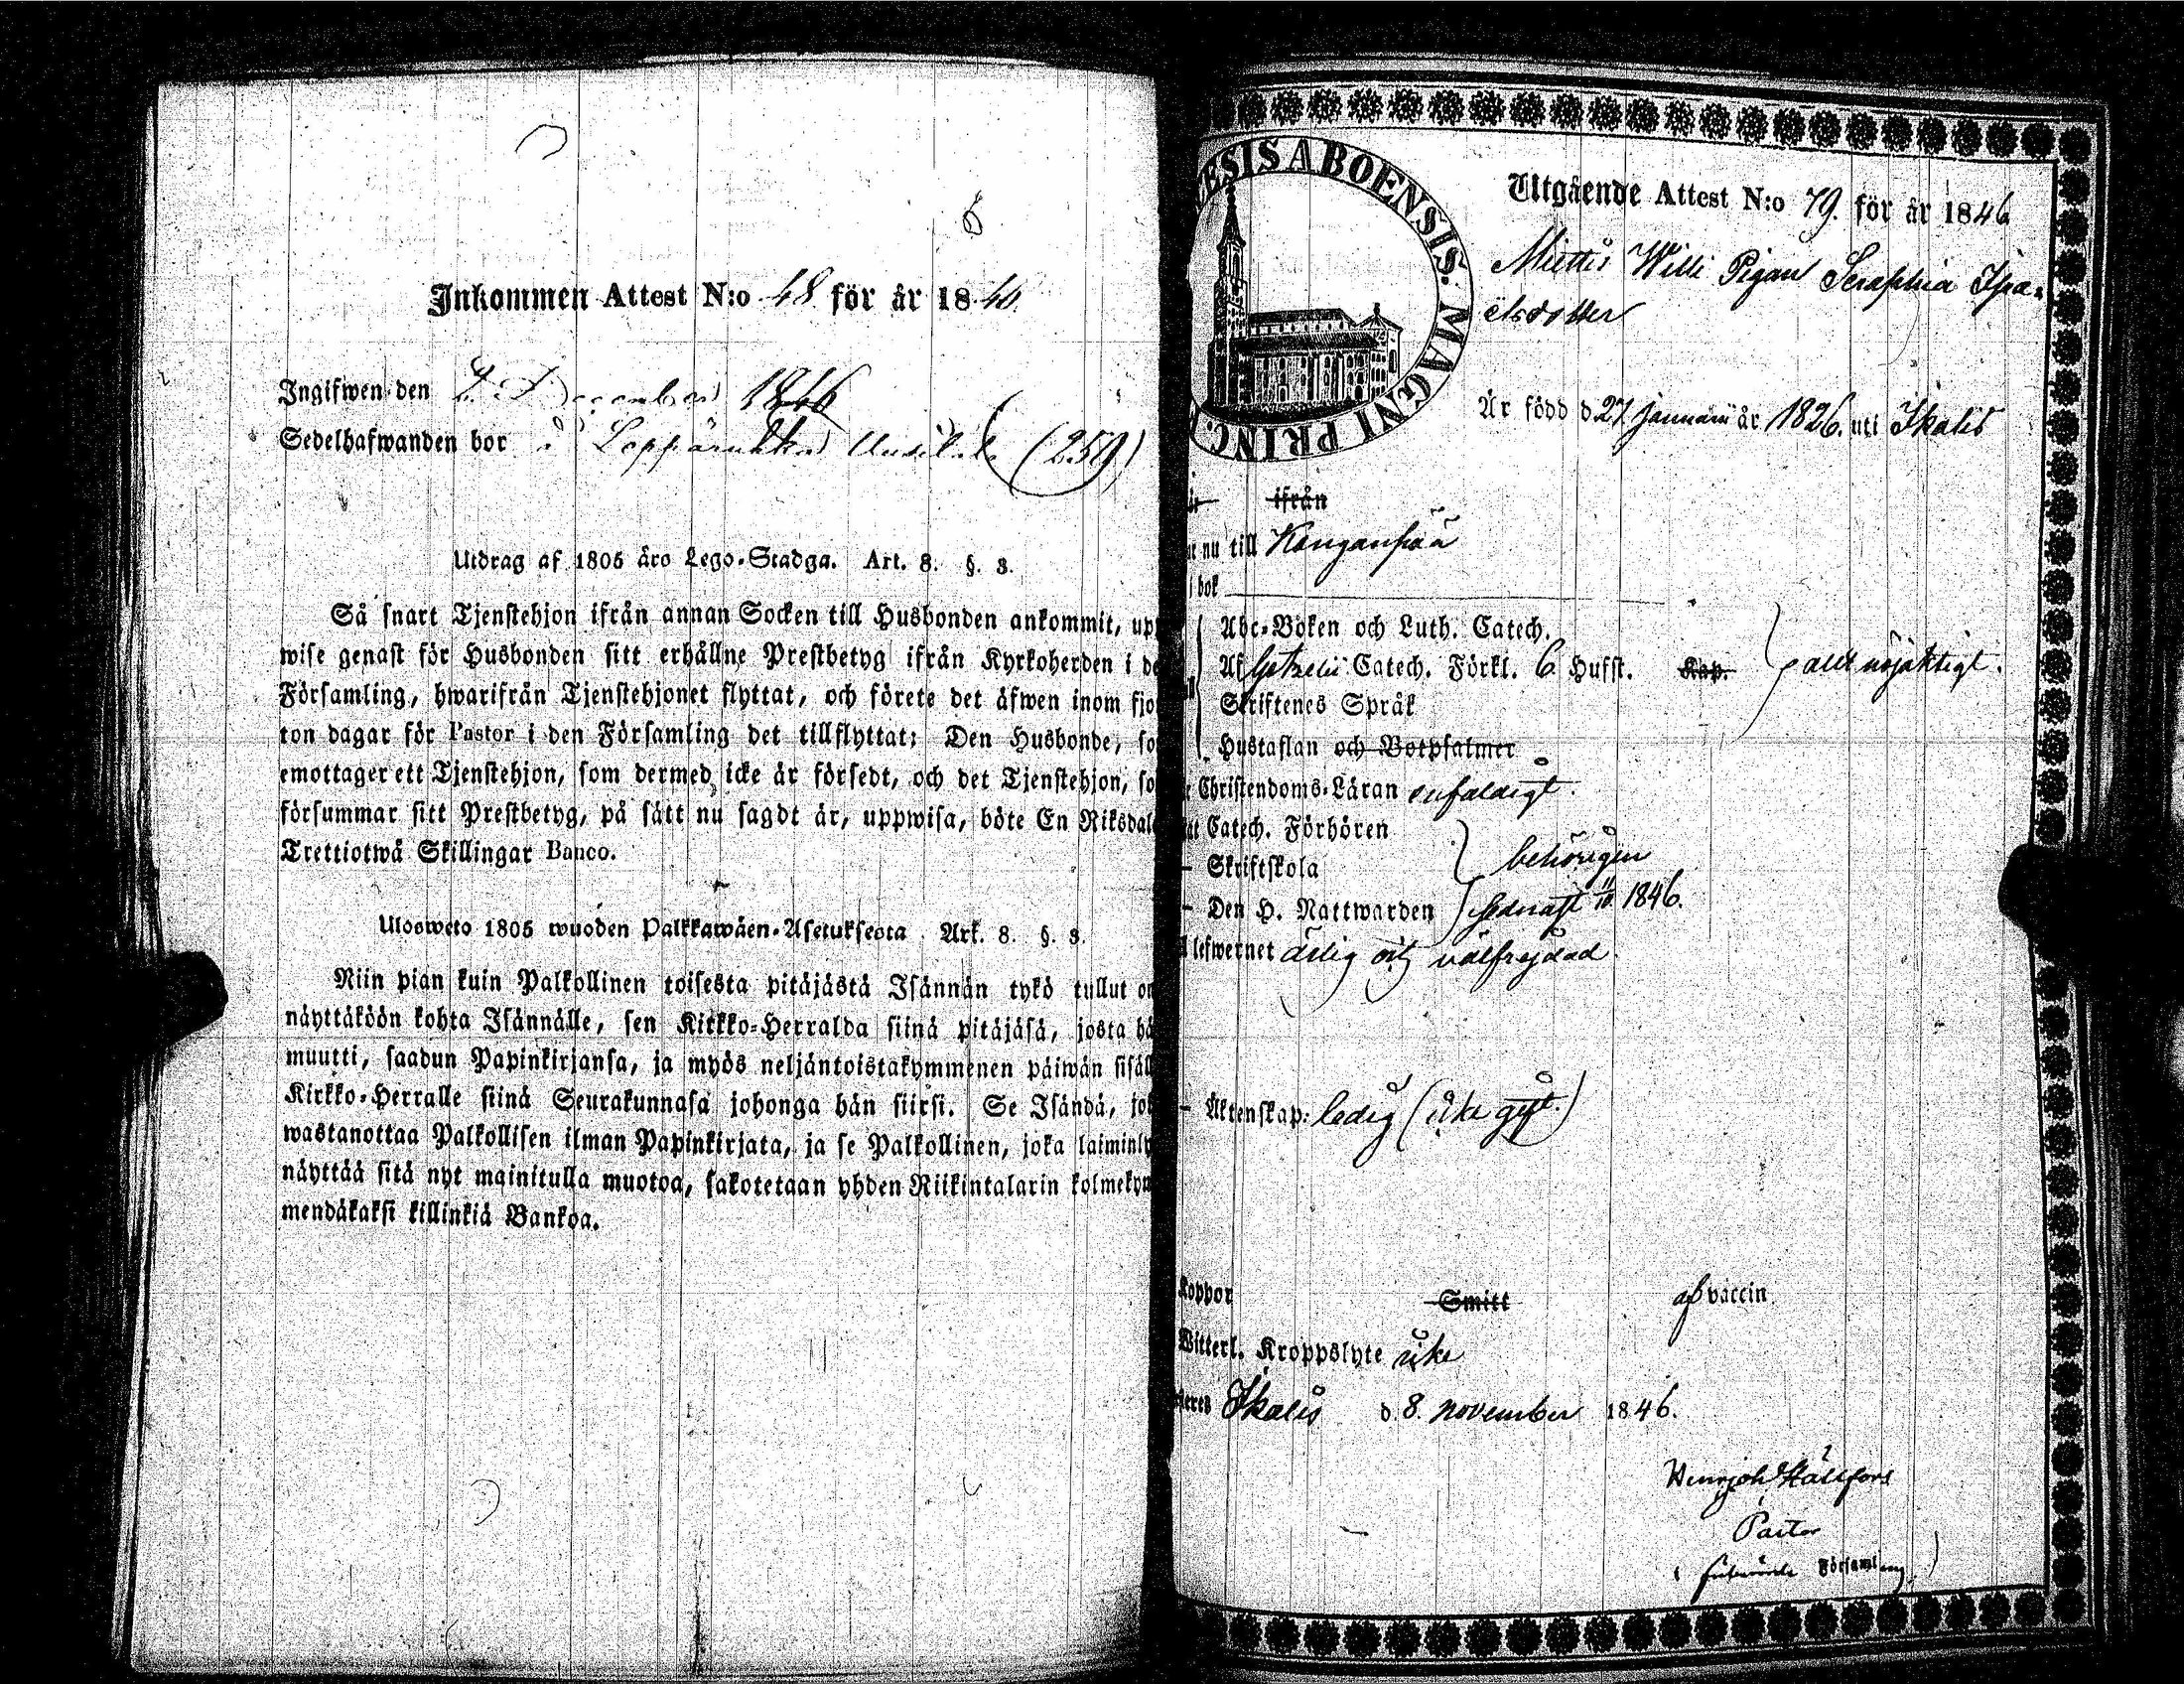 Inkommen Attest N:o 48 för år 1846
Ingifwen den 2 December 1846
Sedelhafwanden bor i (259)
Utdrag af 1805 års Lego-Stadga. Art. 8. §. 3.
Så snart Tjenstehjon ifrån annan Socken till Husbonden ankommit, upp
wise genast för Husbonden sitt erhållne Prestbetyg ifrån Kyrkoherden i de
Församling, hwarifrån Tjenstehjonet flyttat, och förete det äfwen inom fjor
ton dagar för Pastor i den Församling det tillflyttat; Den Husbonde, so
emottager ett Tjenstehjon, som dermed icke är försedt, och det Tjenstehjon, so
försummar sitt Prestbetyg, på sätt nu sagdt är, uppwisa, böte En Riksdale
Trettiotwå Skillingar Banco.
Ulosweto 1805 wuoden Palkkawäen-Asetuksesta. Art. 8. §. 3.
Niin pian kuin Palkollinen toisesta pitäjästä Isännän tykö tullut on
näyttäköön kohta Isännälle, sen Kirkko-Herralda siinä pitäjäsä, josta hä
muutti, saadun Papinkirjansa, ja myös neljäntoistakymmenen päiwän sisäll
Kirkko-Herralle siinä Seurakunnasa johonga hän siirsi. Se Isändä, jok
wastanottaa Palkollisen ilman Papinkirjata, ja se Palkollinen, joka laiminly
näyttää sitä nyt mainitulla muotoa, sakotetaan yhden Riikintalarin kolmekym
mendäkaksi killinkiä Bankoa.
ESIS ABOENSIS. MAGNI PRINC.
Utgående Attest N:o 79. för år 1846
Miettis Willi Pigan Seraphia Isra-
elsdotter
Är född d 27 Januarii år 1826. uti Ikalis
ifrån
nu till Kanganpää
bok
Abc-Boken och Luth. Catech.
Af Getzelii Catech. Förkl. 6 Hufst. Kap. allt nöjaktigt.
Skriftenes Språk
Hustaflan och Botpsalmer
Christendoms-Läran enfaldigt.
Catech. Förhören
Skriftskola behörigen
Den H. Nattwarden sednast 11/10 1846.
lefwernet ärlig och välfrejdad.
Äktenskap: ledig (icke gift.)
Koppor Smitt af vaccin
Witterl. Kroppslyte icke
Ikalis d. 8. november 1846.
Pastor
Församling